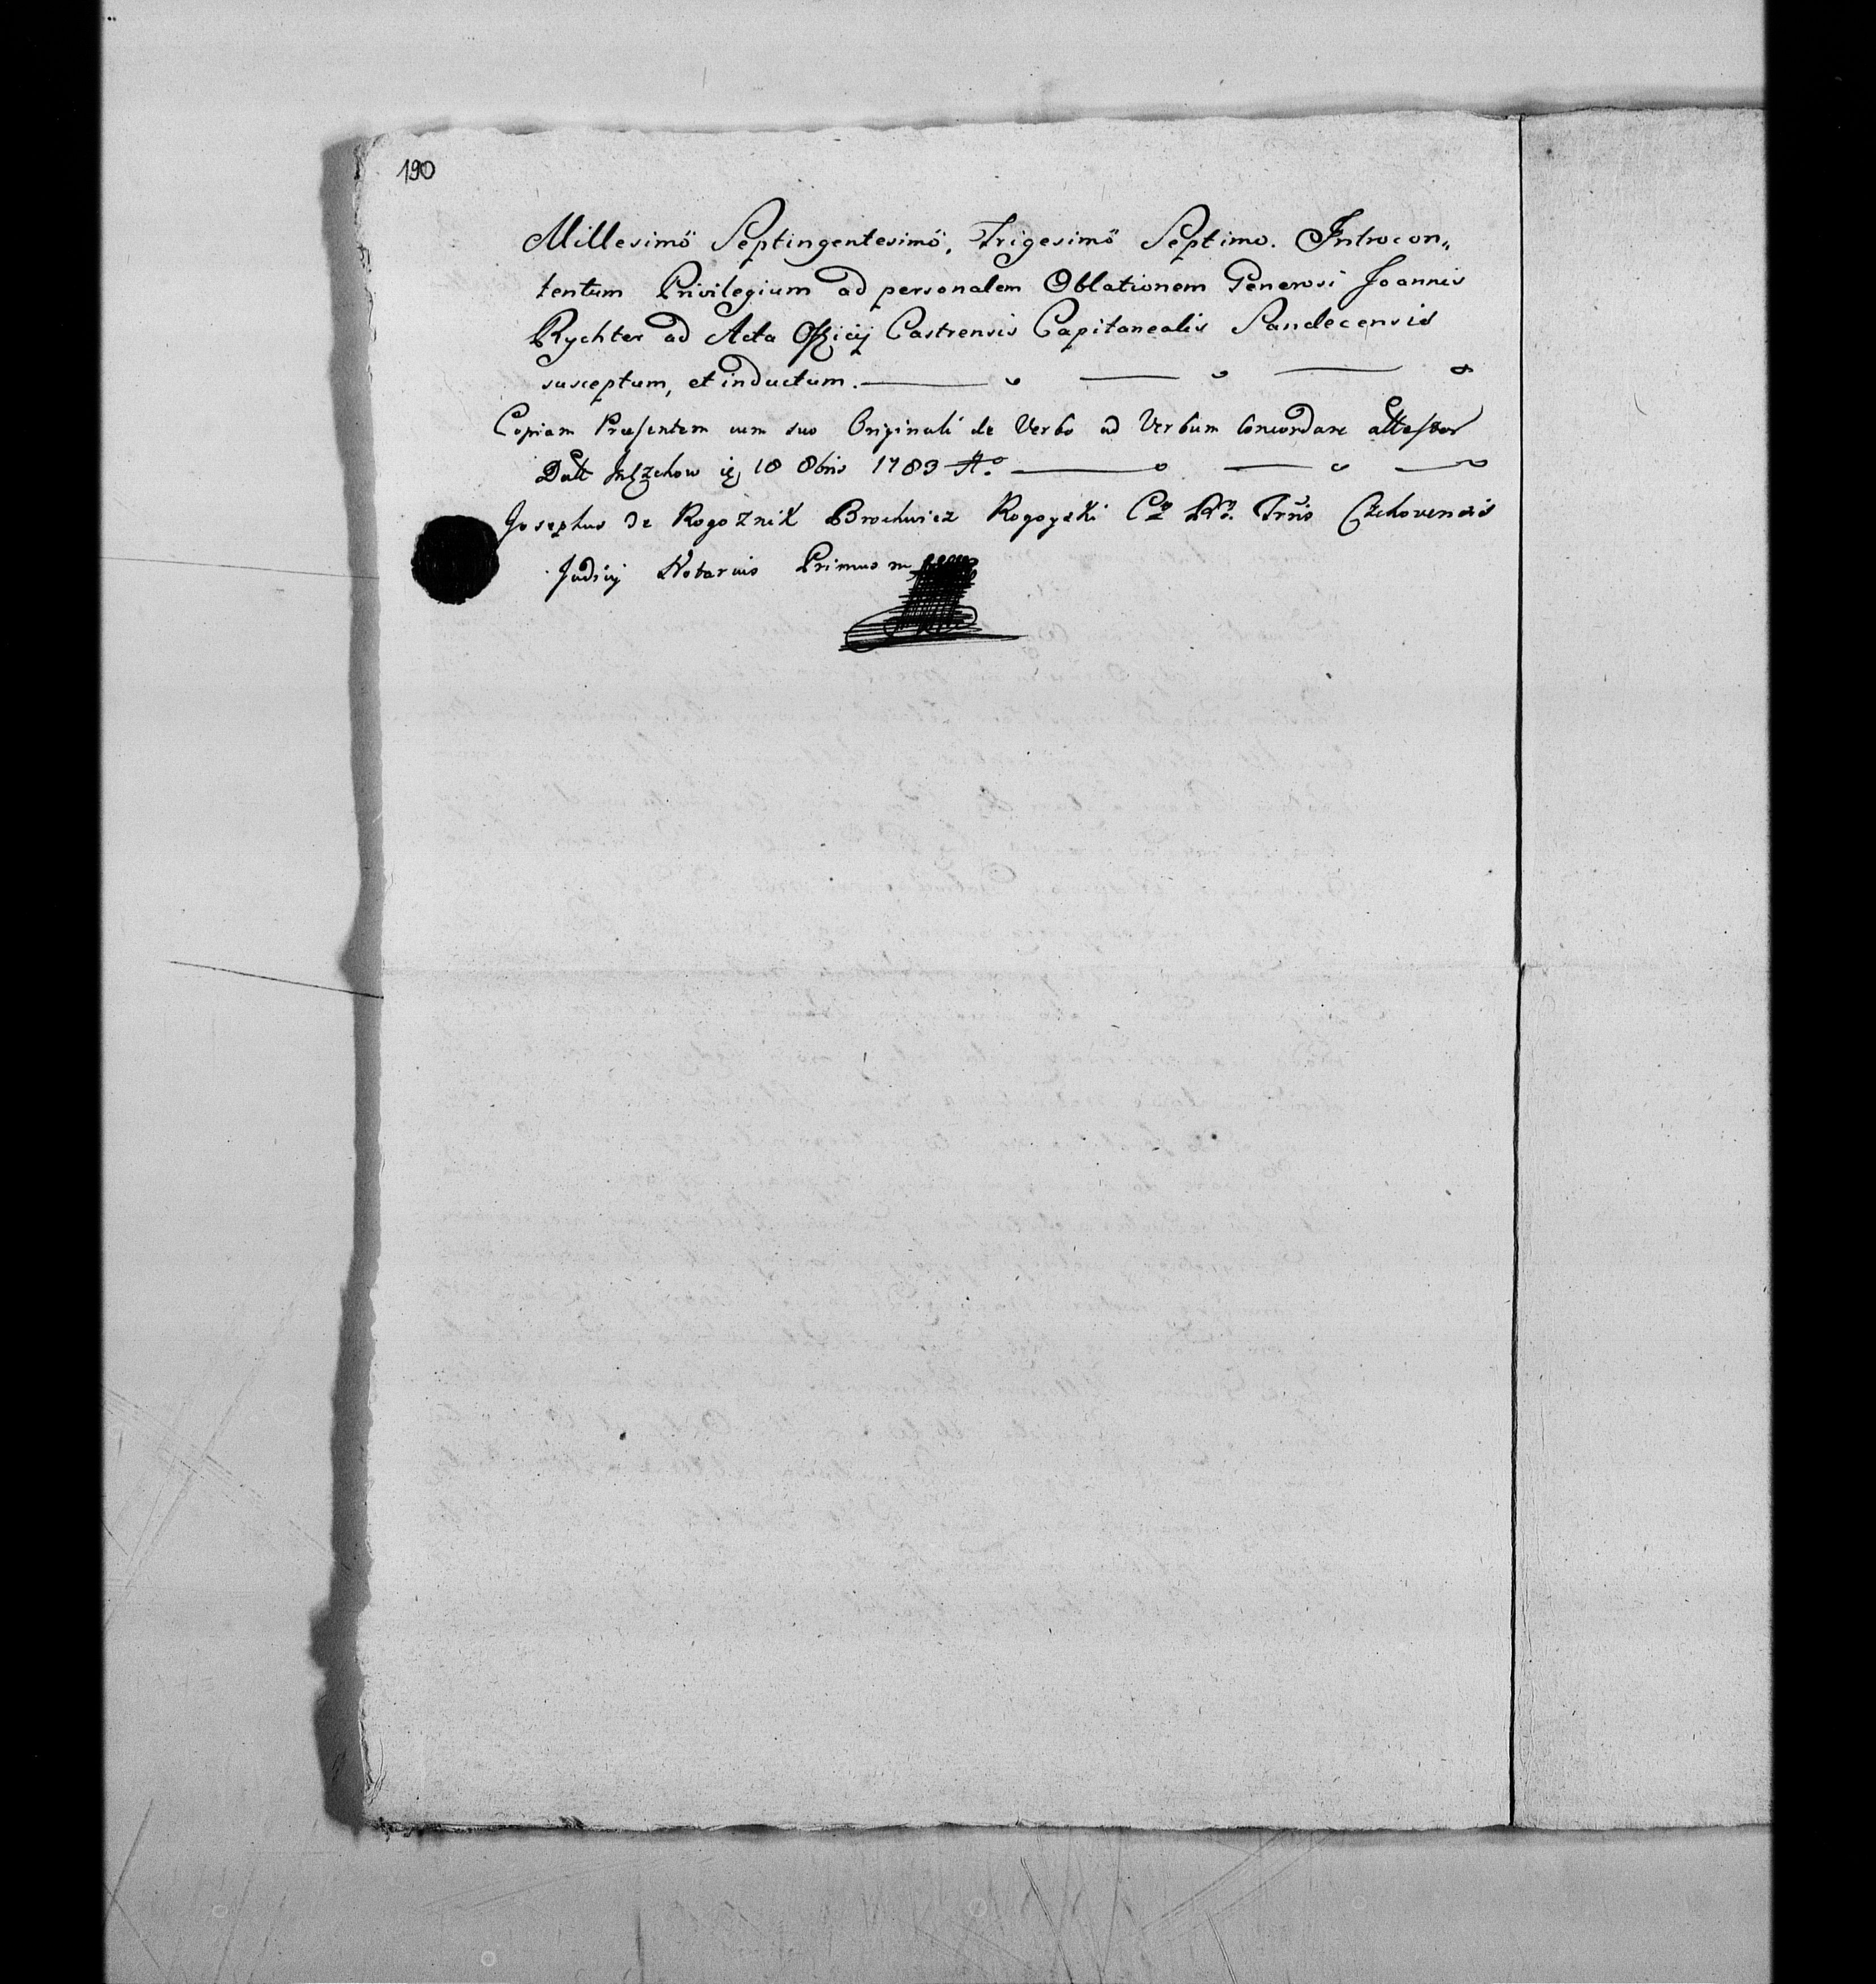 190
Millesimö Septingentesimö, Trigesimö Septimo. Introcon„
tentum Privilegium ad personalem Oblationem Generosi Joannis
Rychter ad Acta Officij Castrensis Capitanealis Sandecensis
susceptum, et inductum.
Copiam Præsentem cum suo Originali de Verbo ad Verbum Concordare attestor
Datt 18 8bris 1783 Ao
Josephus de Rogoznik Brochwicz Rogoyski Trris Czchovensis
Judicij Notarius Primus m